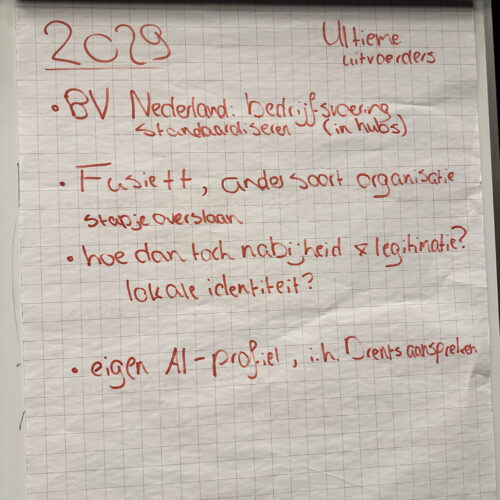 2029
Ultieme
uitvoerders
• BV Nederland: bedrijfsvoering
standaardiseren (in hubs)
• Fusie++, ander soort organisatie
stapje overslaan
• hoe dan toch nabijheid & legitimatie?
lokale identiteit?
• eigen AI-profiel, i.h. Drents aanspreken